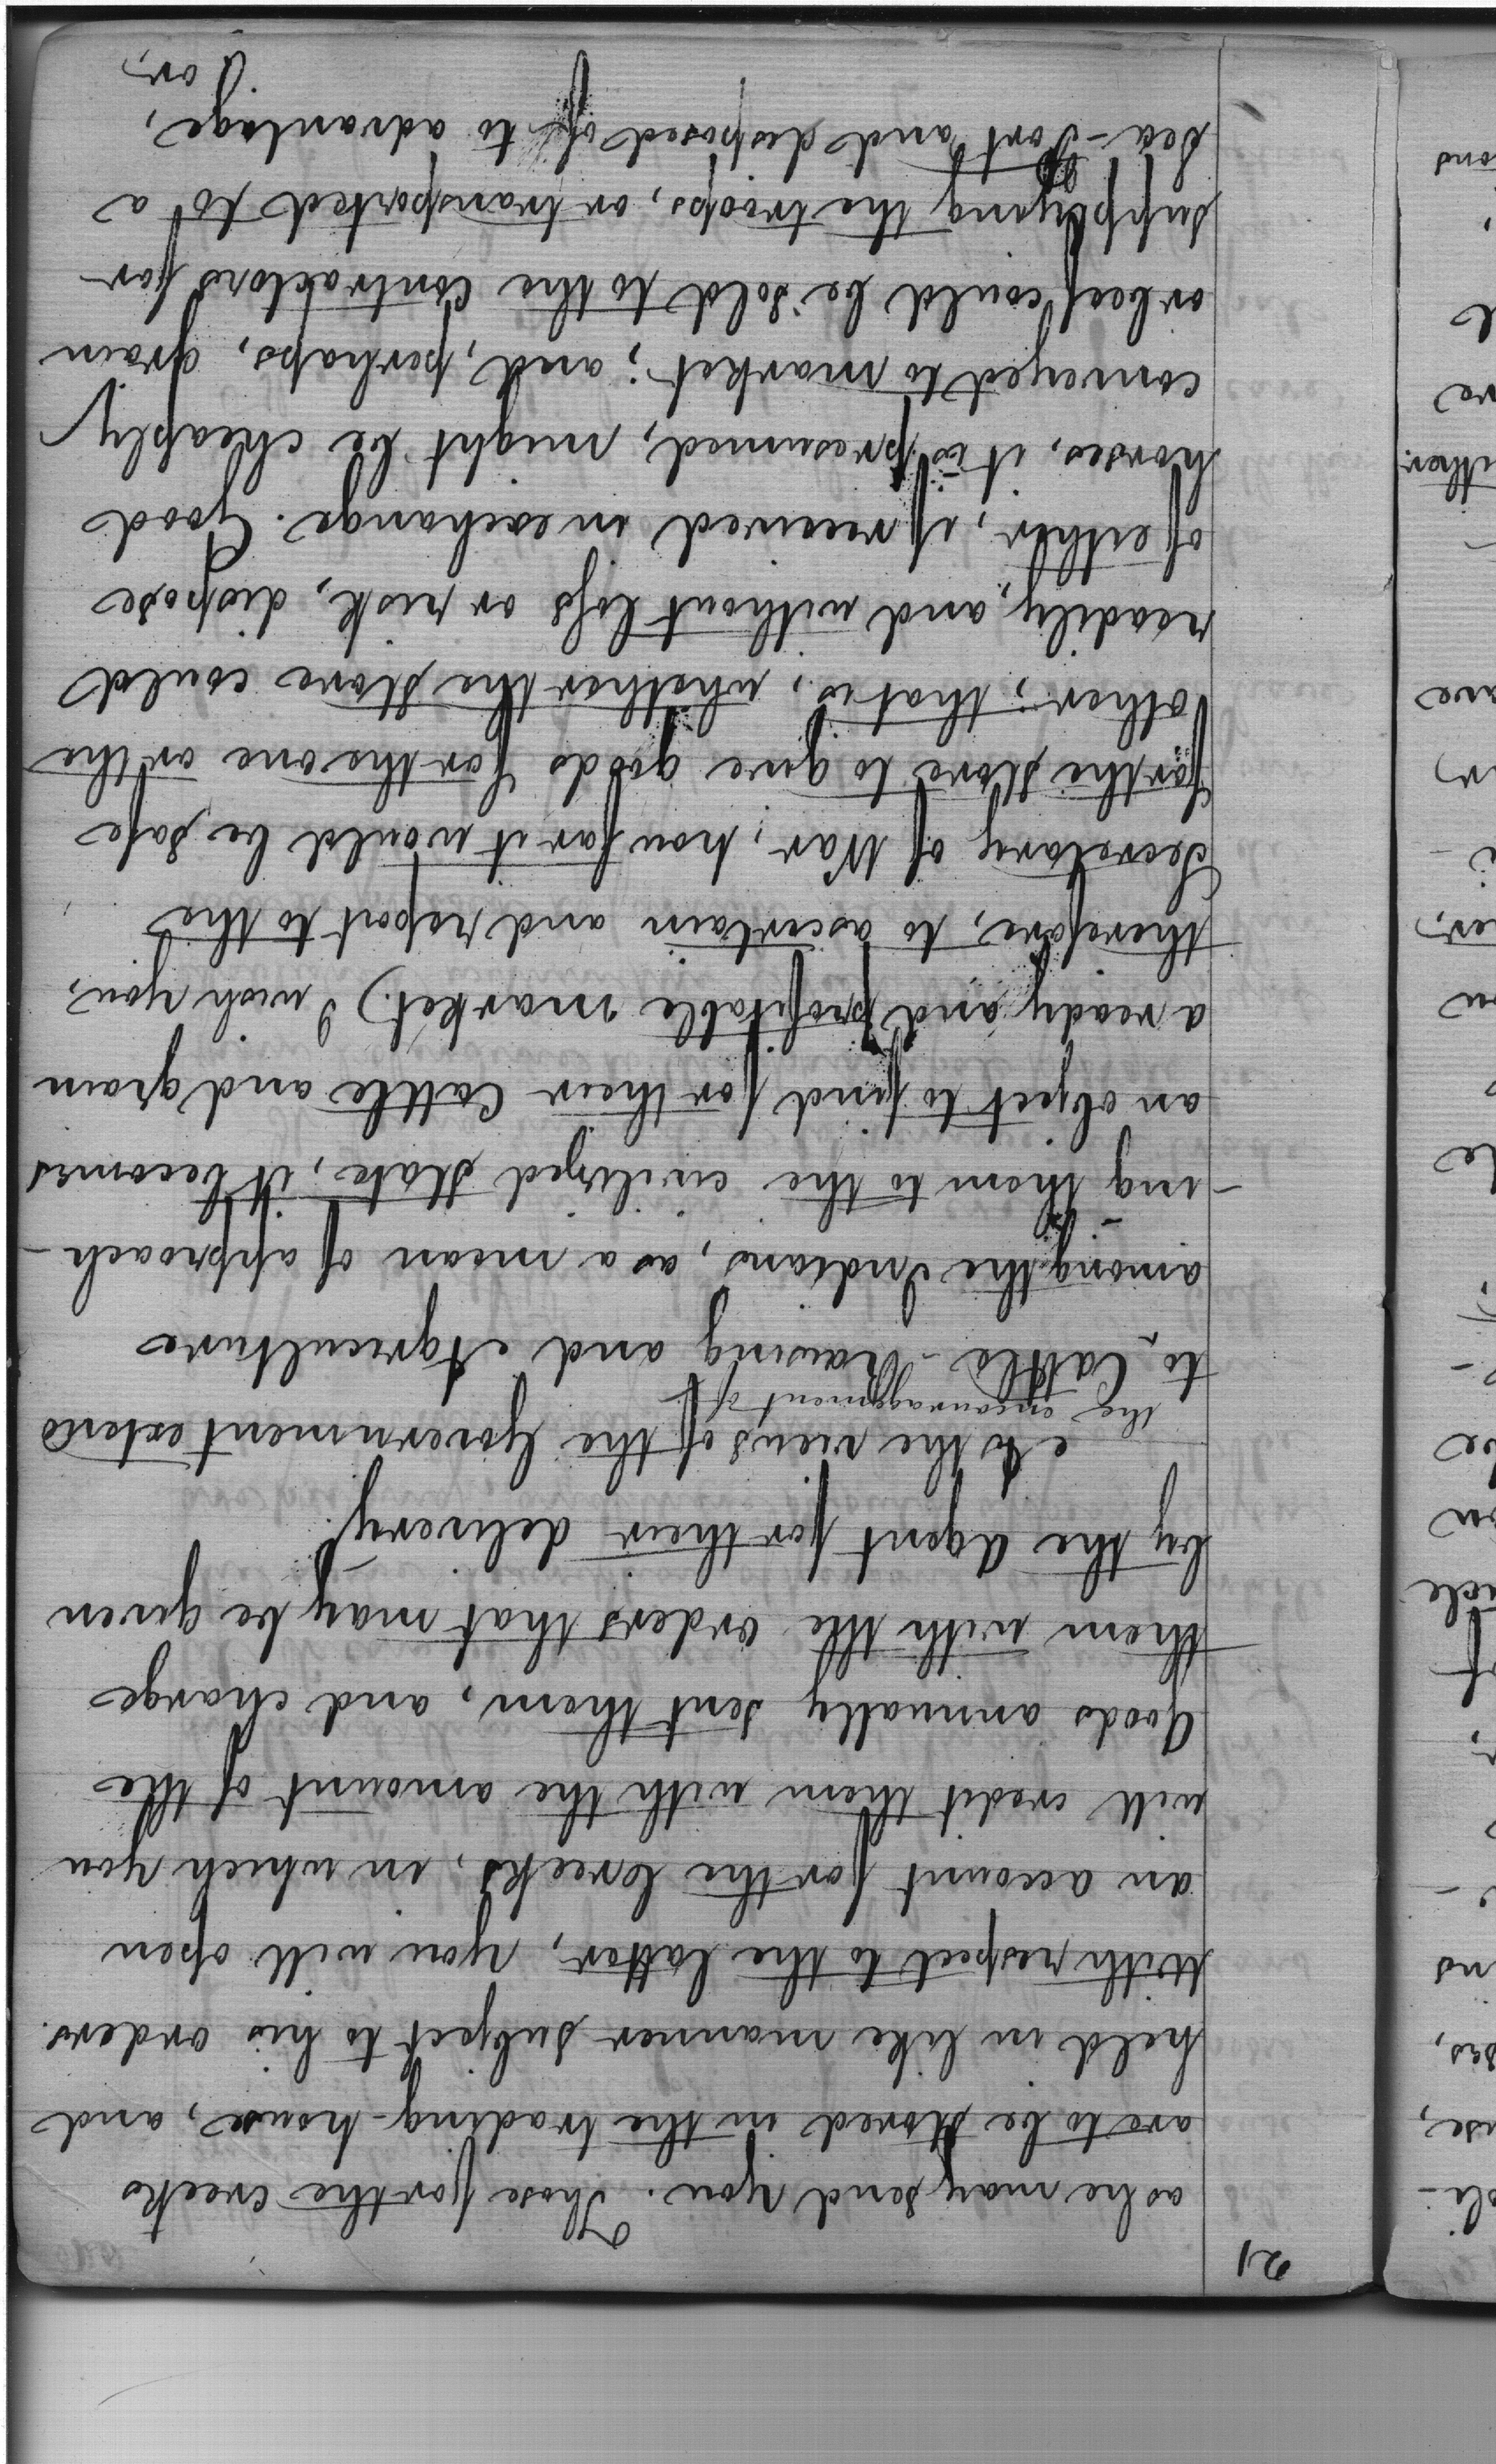 21
as he may send you. Those for the creeks
are to be stored in the trading-house, and
held in like manner subject to his orders.
With respect to the latter, you will open
an account for the Creeks, in which you
will credit them with the amount of the
Goods annually sent them, and charge
them with the orders that may be given
by the Agent for their delivery.
As the views of the Government extend
the encouragement of
to Cattle-Raising and Agriculture
among the Indians, as a mean of approach-
-ing them to the civilized state, it becomes
an object to find for their Cattle and grain
a ready and profitable market.) I wish you,
therefore, to ascertain and report to the
Secretary of War, how far it would be safe
for the store to give goods for the one or the
other; that is, whether the store could
readily, and without loss or risk, dispose
of either, if received in exchange. Good
horses, it is presumed, might be cheaply
conveyed to market; and, perhaps, grain
or beef could be sold to the Contractors for
supplying the troops, or transported to a
Sea-Port and disposed of to advantage,
or,